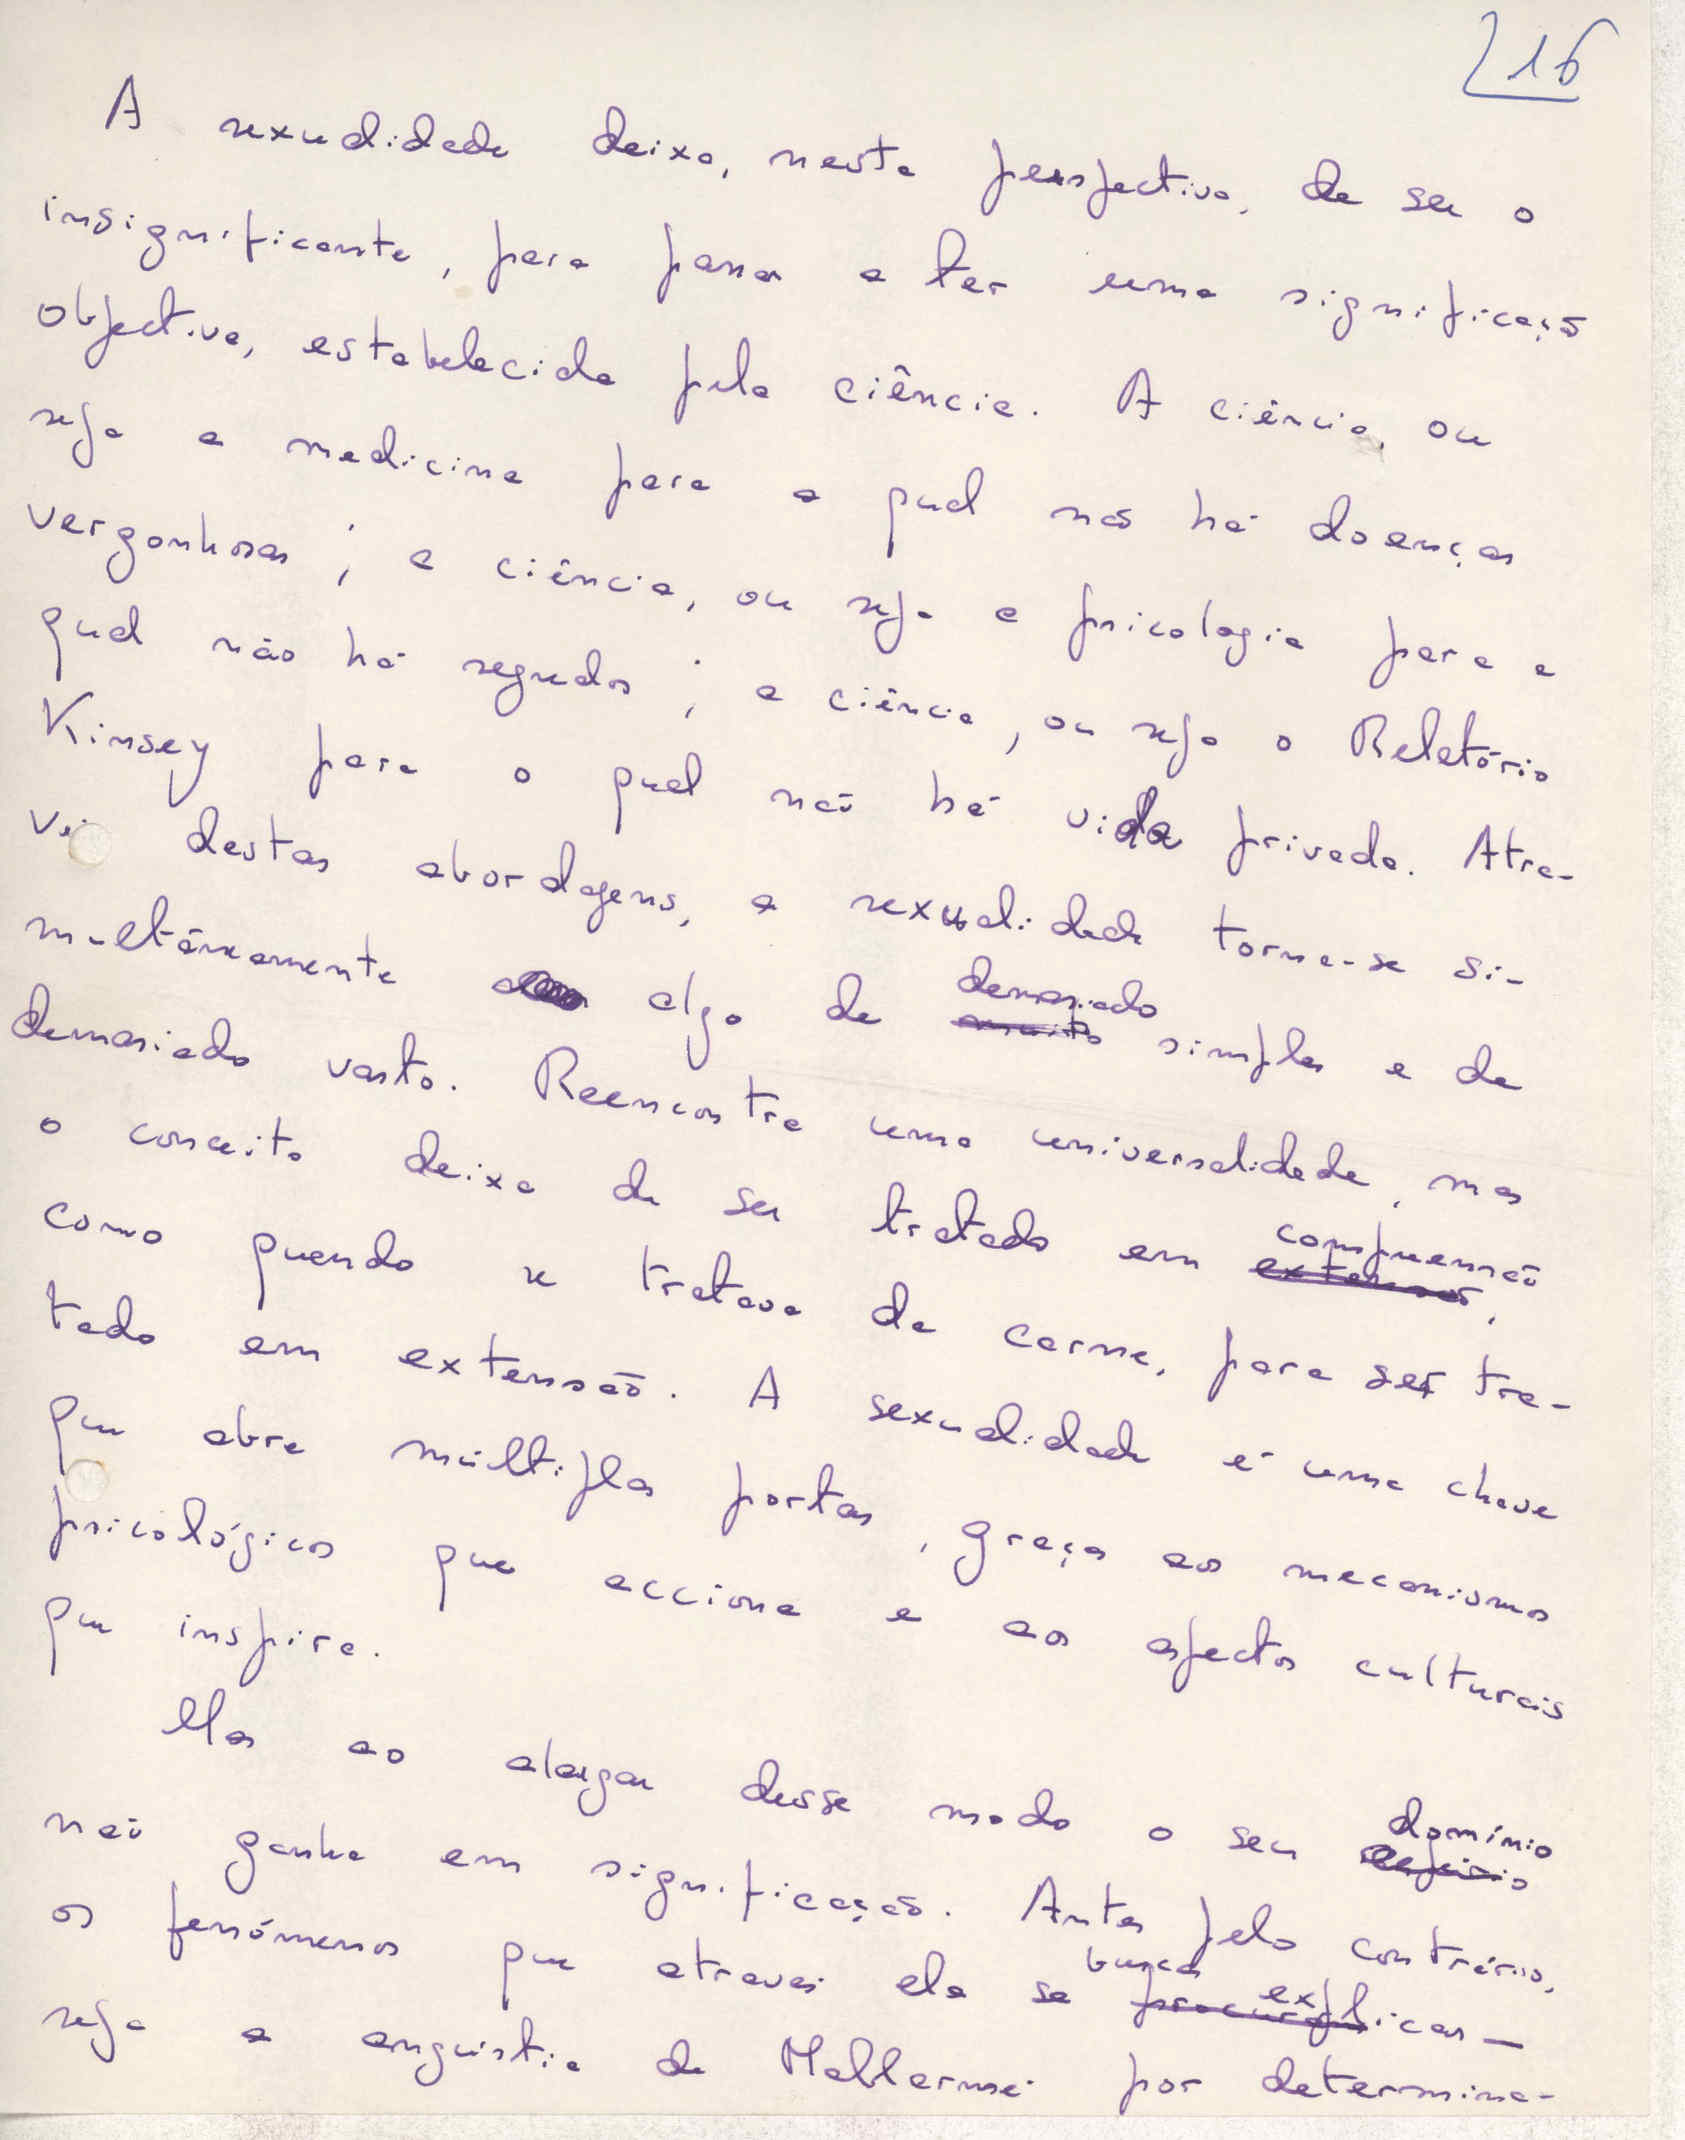 216
A sexualidade deixa, nesta perspectiva, de ser o
insignificante, para passar a ter uma significação
objectiva, estabelecida pela ciência. A ciência, ou
seja a medicina para a qual não há doenças
vergonhosas ; a ciência, ou seja a psicologia para a
qual não há segredos ; a ciência, ou seja o Relatório
Kinsey para o qual não há vida privada. Atra-
vés destas abordagens, a sexualidade torna-se si-
multâneamente algo de demasiado simples e de
demasiado vasto. Reencontra uma universalidade, mas
o conceito deixa de ser tratado em compreensão,
como quando se tratava da carne, para ser tra-
tado em extensão. A sexualidade é uma chave
que abre múltiplas portas, graças aos mecanismos
psicológicos que acciona e aos aspectos culturais
que inspira.
Mas ao alargar desse modo o seu domínio
não ganha em significação. Antes pelo contrário,
os fenómenos que através dela se busca explicar —
seja a angústia de Mallarmé por determina-